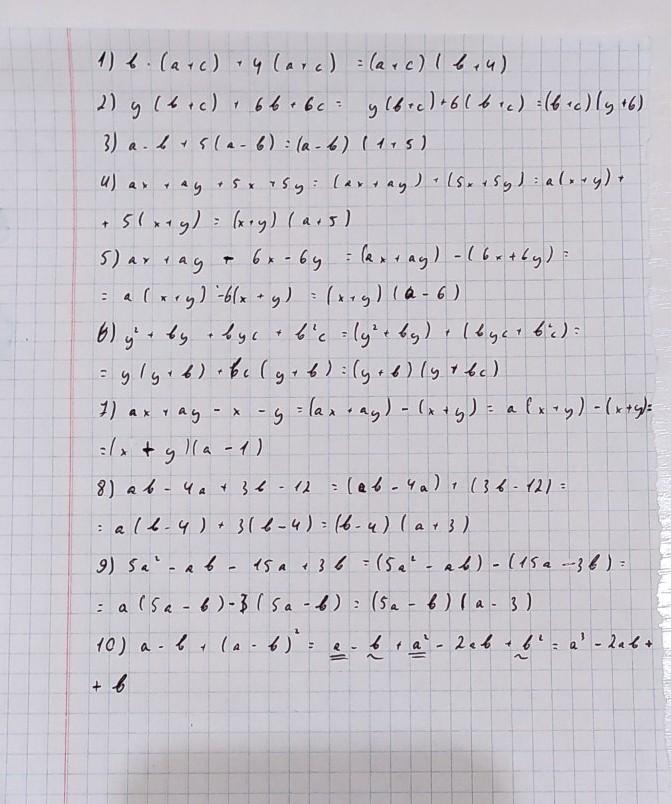 1) b · (a+c) + 4 (a+c) = (a+c) ( b+4)
2) y (b+c) + 6b + 6c = y(b+c)+6( b+c) =(b+c)(y+6)
3) a - b + 5(a-b) = (a-b) (1+5)
4) ax + ay + 5x + 5y = (ax+ay) + (5x+5y) = a(x+y) +
+ 5(x+y) = (x+y) (a+5)
5) ax + ay - 6x - 6y = (ax+ay) -(6x+6y) =
= a (x+y) -6(x+y) = (x+y) (a-6)
6) y² + by + byc + b²c = (y²+by) + (byc + b²c) =
= y(y+b) + bc(y+b) = (y+b)(y+bc)
7) ax + ay - x - y = (ax+ay) - (x+y) = a(x+y) -(x+y)=
=(x + y)(a-1)
8) ab - 4a + 3b - 12 = (ab - 4a) + (3b-12) =
= a(b-4) + 3(b-4) = (b-4) (a+3)
9) 5a² - ab - 15a + 3b =(5a² - ab) - (15a - 3b) =
= a (5a-b) -3 (5a-b) = (5a-b) (a-3)
10) a - b + (a-b)² = a - b + a² - 2ab + b² = a³ - 2ab +
+ b